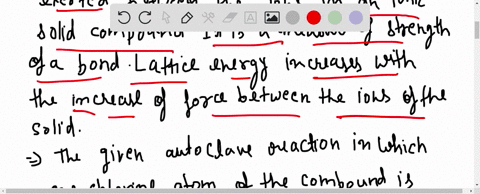 solid compound. It is a measure of strength
of a bond. Lattice energy increases with
the increase of force between the ions of the
solid.
⇒ The given autoclave reaction in which
atom of the compound is